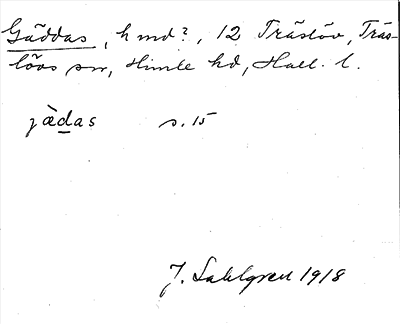 Gäddas, hmd?, 12 Träslöv, Träs-
lövs sn, Himle hd, Hall. l.
jàdas s. 15
J. Sahlgren 1918